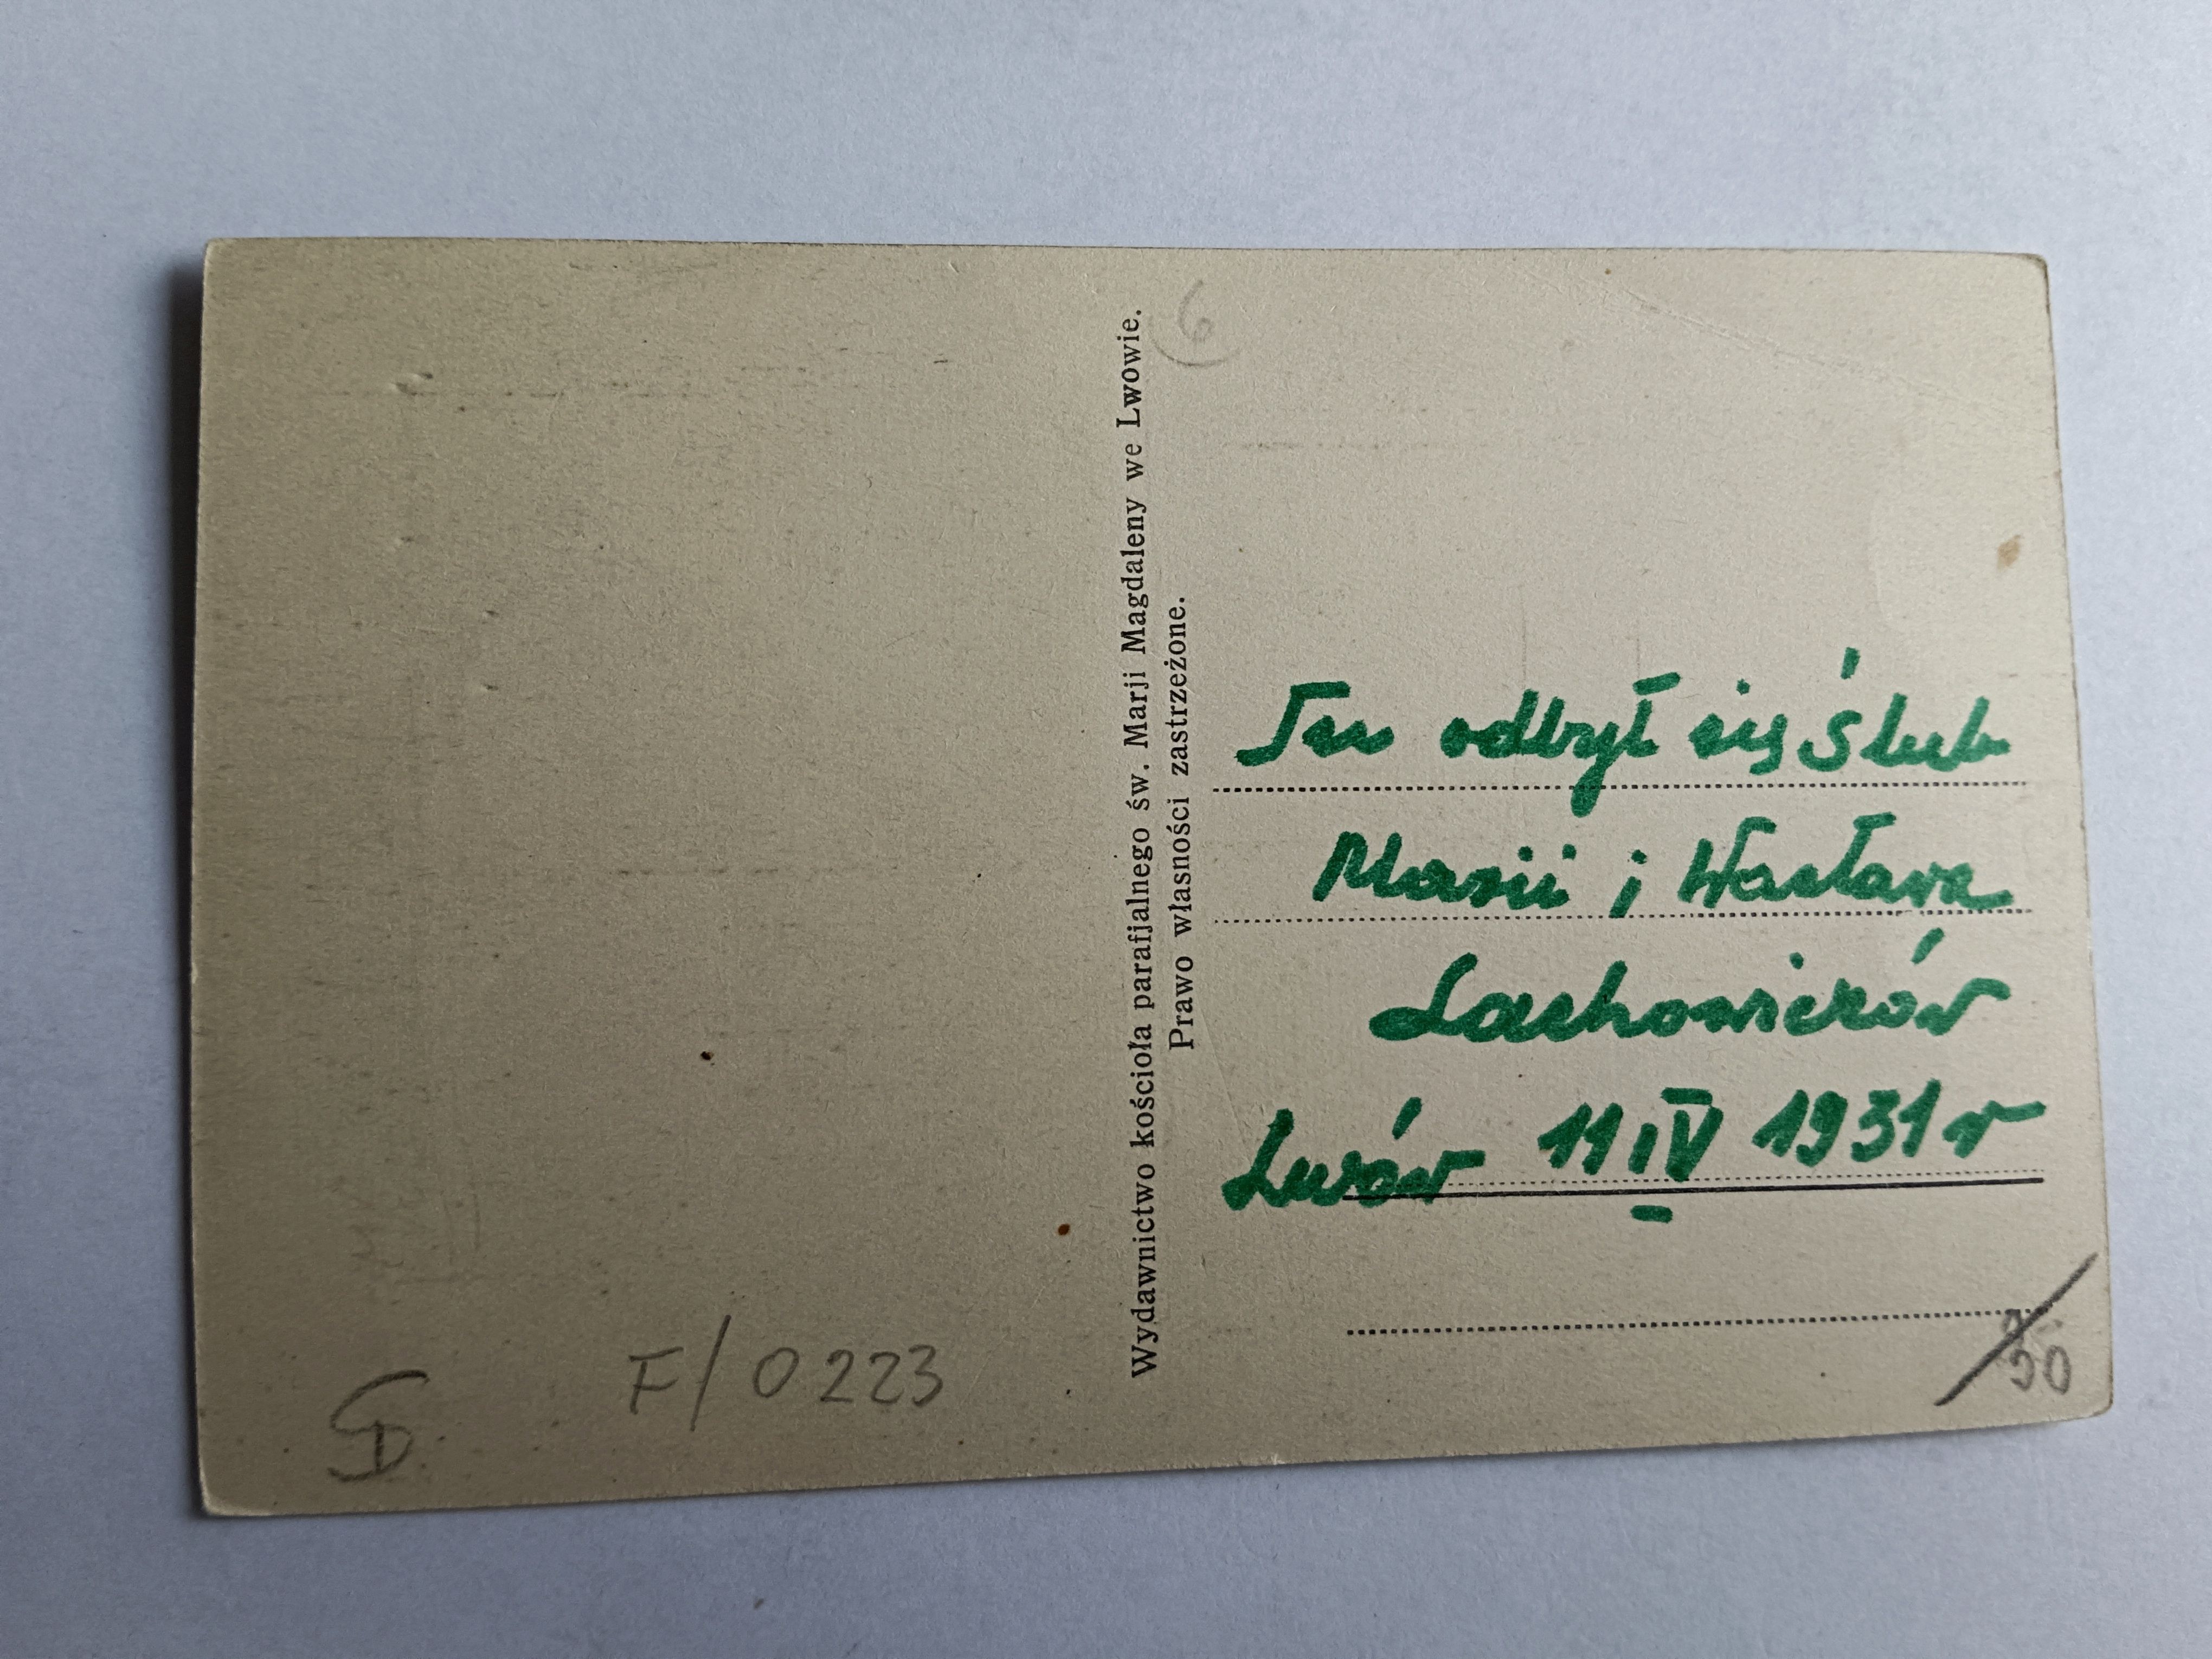 6
Wydawnictwo kościoła parafjalnego św. Marji Magdaleny we Lwowie.
Prawo własności zastrzeżone.
Tu odbył się ślub
Marii i Wacława
Lachowiczów
Lwów 11 IV 1931 r
F/0223
50